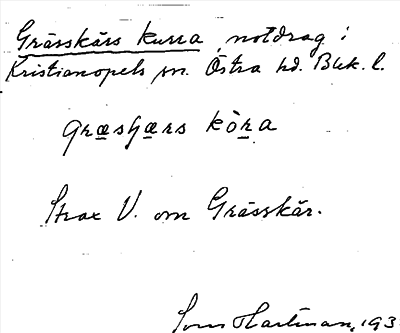 Grässkärs kurra, notdrag i
Kristianopels sn. Östra hd. Blek. l.
græsʃærs kòra
Strax V. om Grässkär.
Hartman, 193